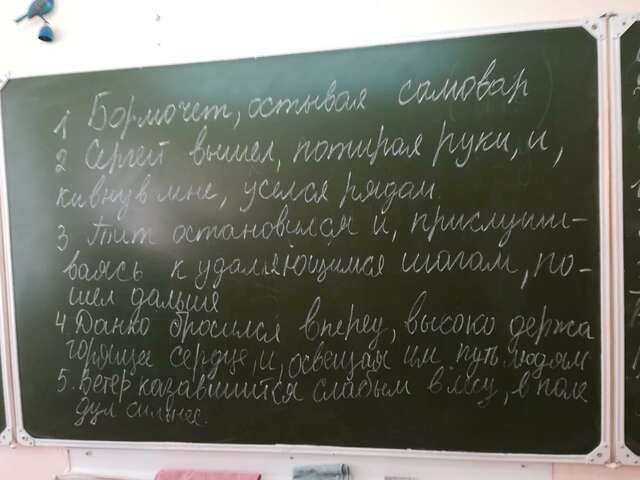 1 Бормочет, остывая самовар
2 Сергей вышел, потирая руки, и,
кивнув мне, уселся рядом
3 Тит остановился и, прислуши-
ваясь к удаляющимся шагам, по-
шел дальше
4 Данко бросился вперед, высоко держа
горящее сердце, и, освещая им путь людям
5. Ветер казавшийся слабым в лесу, в поле
дул сильнее.